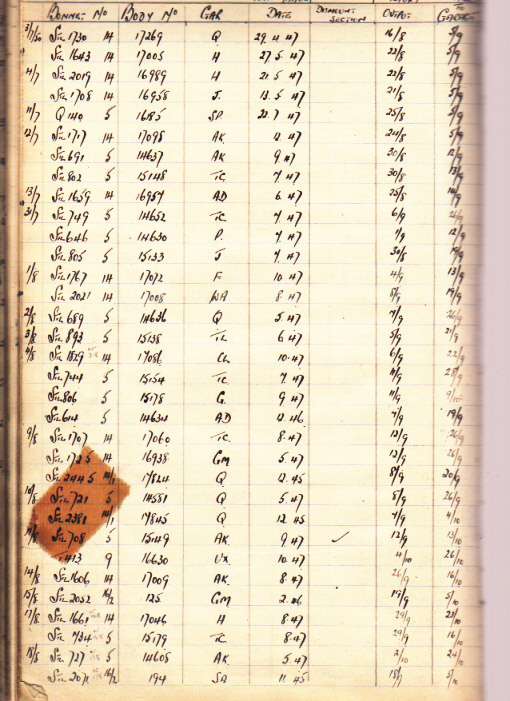 BONNET No BODY No GAR DATE DISMOUNT SECTION OUTPUT TO GARAGE
3/7/50 STL 1730 14 17269 Q 29.4.47 16/8 5/9
STL 1643 14 17005 H 27.5.47 22/8 5/9
14/7 STL 2019 14 16989 H 21.5.47 22/8 5/9
STL 1708 14 16958 J. 13.5.47 21/8 5/9
11/7 Q 140 5 16185 SP. 22.7.47 25/8 5/9
12/7 STL 1717 14 17098 AK 12.47 24/8 5/9
STL 691 5 14637 AK 9.47 20/8 12/9
STL 802 5 15148 TC 7.47 30/8 13/9
13/7 STL 1659 14 16957 AD 6.47 25/8 19/9
31/7 STL 749 5 14652 TC 7.47 6/9 26/9
STL 646 5 14630 P. 7.47 7/9 12/9
STL 805 5 15133 J 7.47 30/8 19/9
1/8 STL 1767 14 17072 F 10.47 4/9 13/9
STL 2021 14 17008 WA 8.47 8/9 19/9
2/8 STL 689 5 14636 Q 5.47 7/9 26/9
3/8 STL 893 5 15138 TC 6.47 5/9 21/9
4/8 STL 1829 17086 CL 10.47 6/9 22/9
STL 744 5 15154 TC 7.47 11/9 28/9
STL 806 5 15178 G. 9.47 11/9 9/10
STL 614 5 14634 AD 12.46 7/9 19/9
9/8 STL 1707 14 17060 TC 8.47 12/9 26/9
STL 1725 14 16938 GM 5.47 12/9 26/9
STL 2445 16/1 17824 Q 12.45 8/9 20/9
10/8 STL 721 5 14581 Q 5.47 8/9 26/9
STL 2381 16/1 17845 Q 12.45 7/9 4/10
11/8 STL 708 5 15149 AK 9.47 ✓ 12/9 13/10
1413 9 16630 UX 10.47 4/10 26/10
14/8 STL 1606 14 17009 AK. 8.47 26/9 16/10
15/8 STL 2052 16/2 125 GM 2.46 19/9 5/10
17/8 STL 1661 14 17046 H 8.47 29/9 23/10
STL 734 5 15179 TC 8.47 29/9 16/10
18/8 STL 727 5 14608 AK. 5.47 2/10 24/10
STL 2071 16/2 194 SA 11.45 18/9 5/10